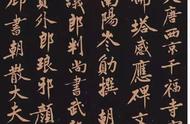 大唐西京千福寺
佛塔感應碑文
南陽岑勛撰朝
議郎判尚書武
員外郎琅邪顏
書朝散大夫